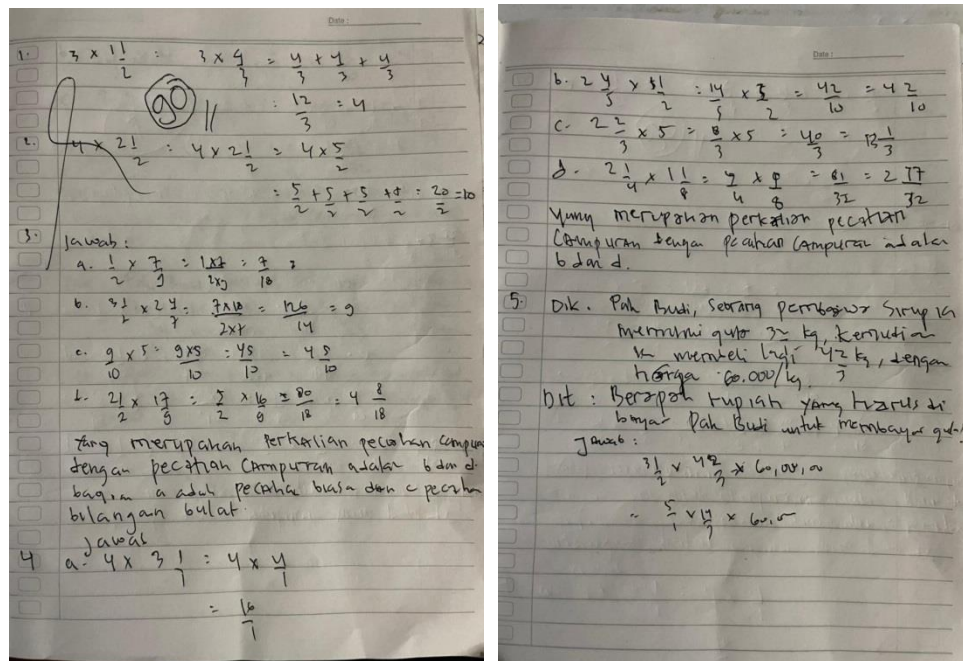 Date :
1. 3 × 1 1/2 = 3 × 4/3 = 4/3 + 4/3 + 4/3
90
= 12/3 = 4
2. 4 × 2 1/2 = 4 × 2 1/2 = 4 × 5/2
= 5/2 + 5/2 + 5/2 + 5/2 = 20/2 = 10
3. Jawab :
a. 1/2 × 7/9 = 1x7/2x9 = 7/18
b. 3 1/2 × 2 4/7 = 7x18/2x7 = 126/14 = 9
c. 9/10 × 5 = 9x5/10 = 45/10 = 4 5/10
d. 2 1/2 × 1 7/9 = 5/2 × 16/9 = 80/18 = 4 8/18
Yang merupakan Perkalian pecahan campuran
dengan pecahan campuran adalah b dan d.
bagian a adalah pecahan biasa dan c pecahan
bilangan bulat.
Jawab
4 a. 4 × 3 1/1 = 4 × 4/1
= 16/1
Date :
b. 2 4/5 × 3 1/2 = 14/5 × 3/2 = 42/10 = 4 2/10
c. 2 2/3 × 5 = 8/3 × 5 = 40/3 = 13 1/3
d. 2 1/4 × 1 1/8 = 9/4 × 9/8 = 81/32 = 2 17/32
Yang merupakan perkalian pecahan
campuran dengan pecahan campuran adalah
b dan d.
5. Dik. Pak Budi, seorang Sirup ia
gula kg, kemudian
ia membeli lagi 4 2/3 kg, dengan
harga 60.000/kg.
Dit : Berapah rupiah yang harus di
bayar Pak Budi untuk membayar gula
Jawab :
3 1/2 × 4 2/3 × 60,00,00
= 5/1 × 14/3 × 60,0